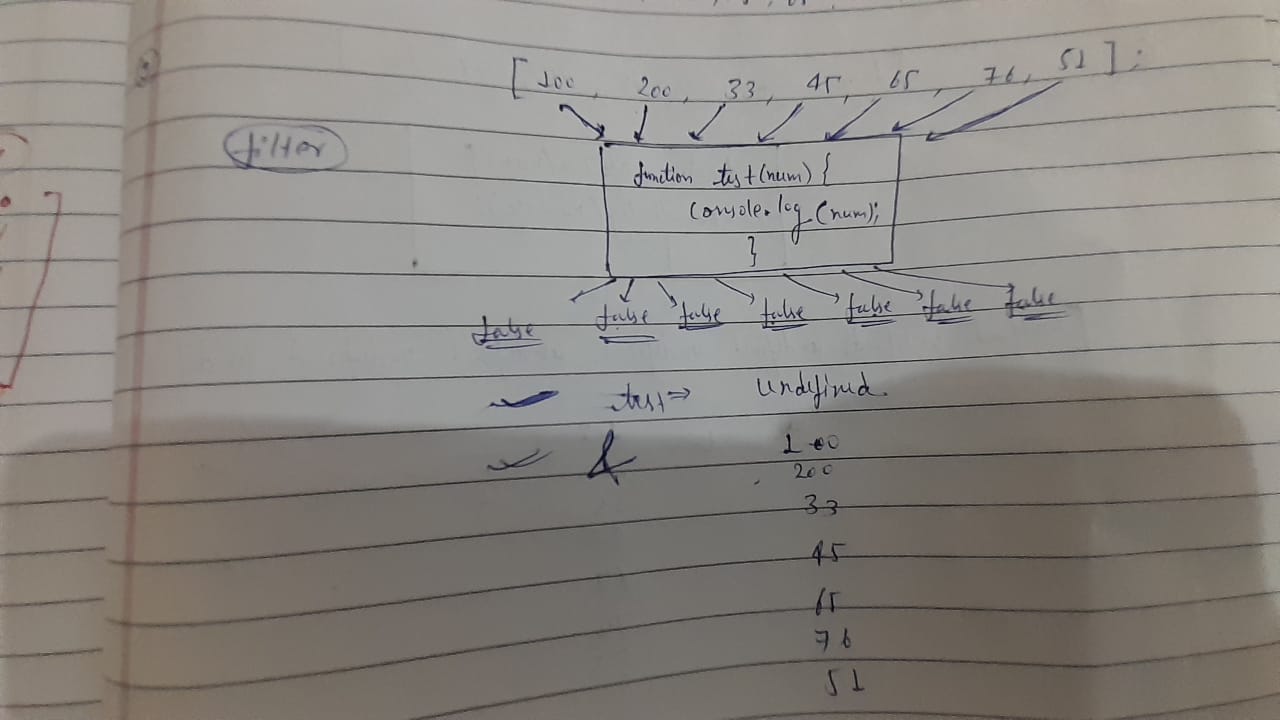 [ 100, 200, 33, 45, 65, 76, 51 ];
filter
function test(num) {
console.log(num);
}
false false false false false false false
test ⇒ undefined.
100
200
33
45
65
76
51